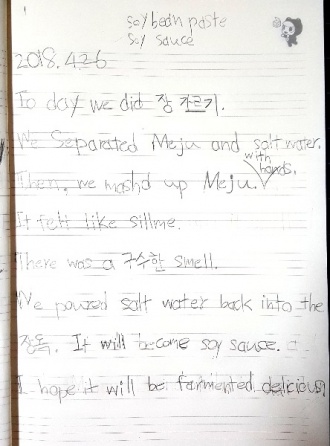 soybean paste
soy sauce
2018.4.26
To day we did 장 가르기.
We Separated Meju and salt water.
with hands.
Then, we mashd up Meju.
It felt like sillme.
There was a 구수한 smell.
We poured salt water back into the
장독. It will become soy sauce.
I hope it will be farmented delicious